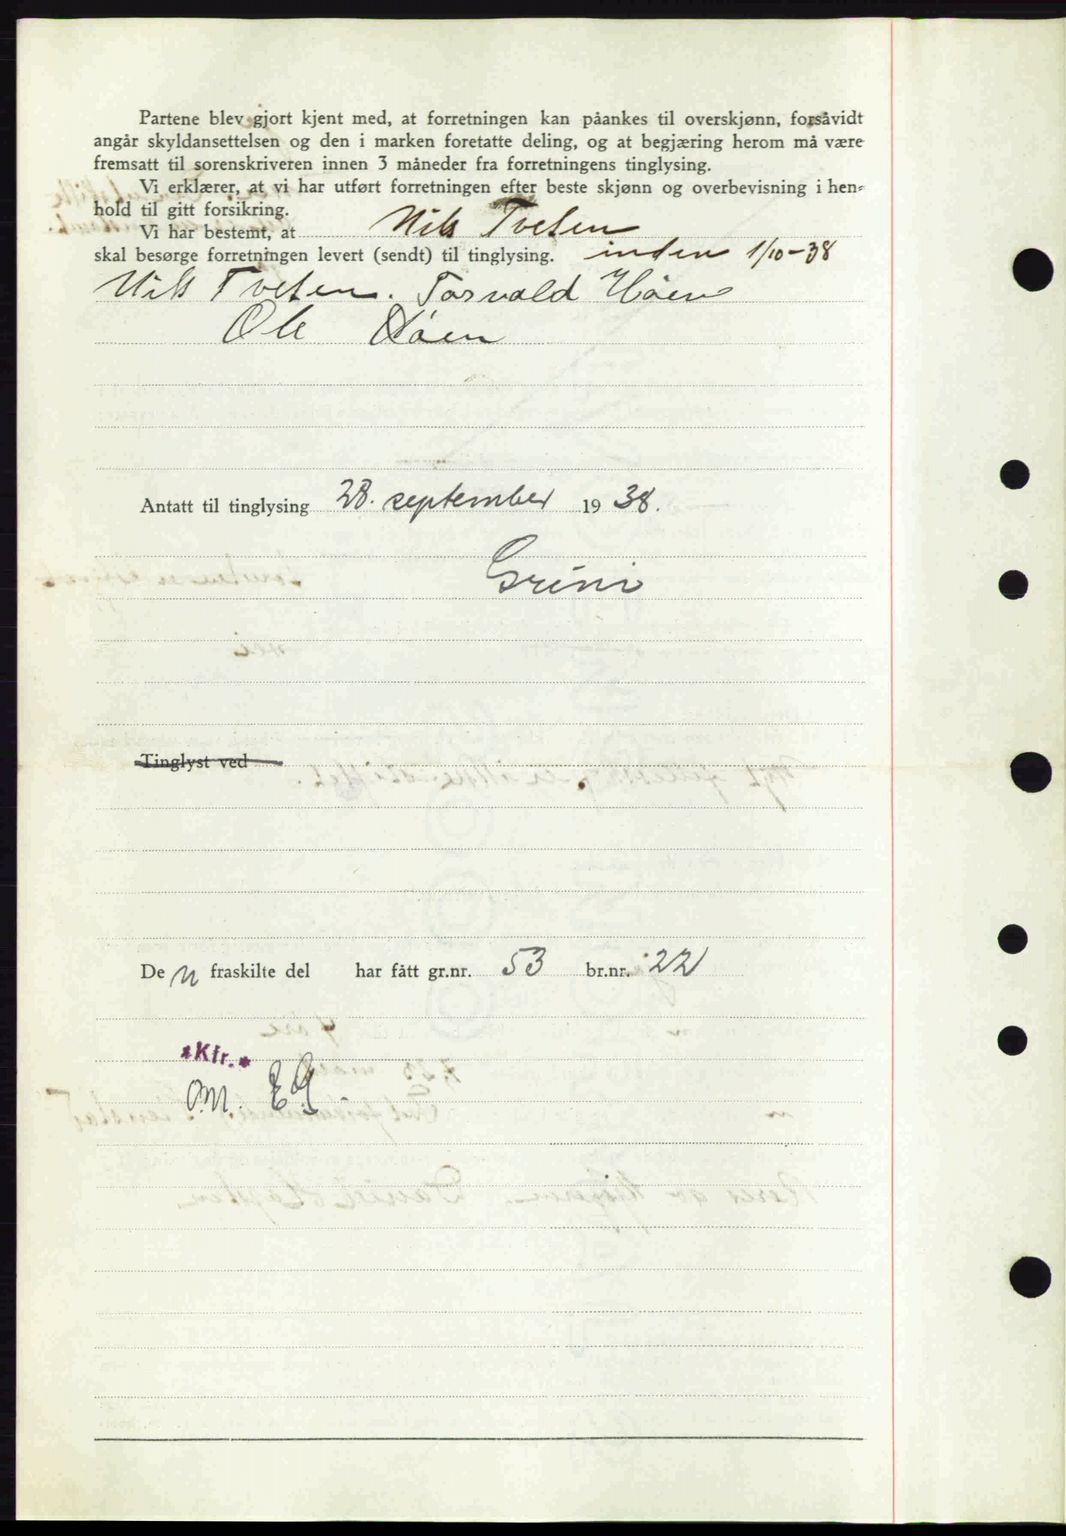 Partene blev gjort kjent med, at forretningen kan påankes til overskjønn, forsåvidt
angår skyldansettelsen og den i marken foretatte deling, og at begjæring herom må være
fremsatt til sorenskriveren innen 3 måneder fra forretningens tinglysing.
Vi erklærer, at vi har utført forretningen efter beste skjønn og overbevisning i hen-
hold til gitt forsikring.
Vi har bestemt, at Nils Tveten
skal besørge forretningen levert (sendt) til tinglysing. inden 1/10-38
Nils Tveten. Torvald Høen
Ole Høen
Antatt til tinglysing 28. september 1938.
Grini
Tinglyst ved
Den fraskilte del har fått gr.nr. 53 br.nr. 22
*Kfr.*
M. EG.